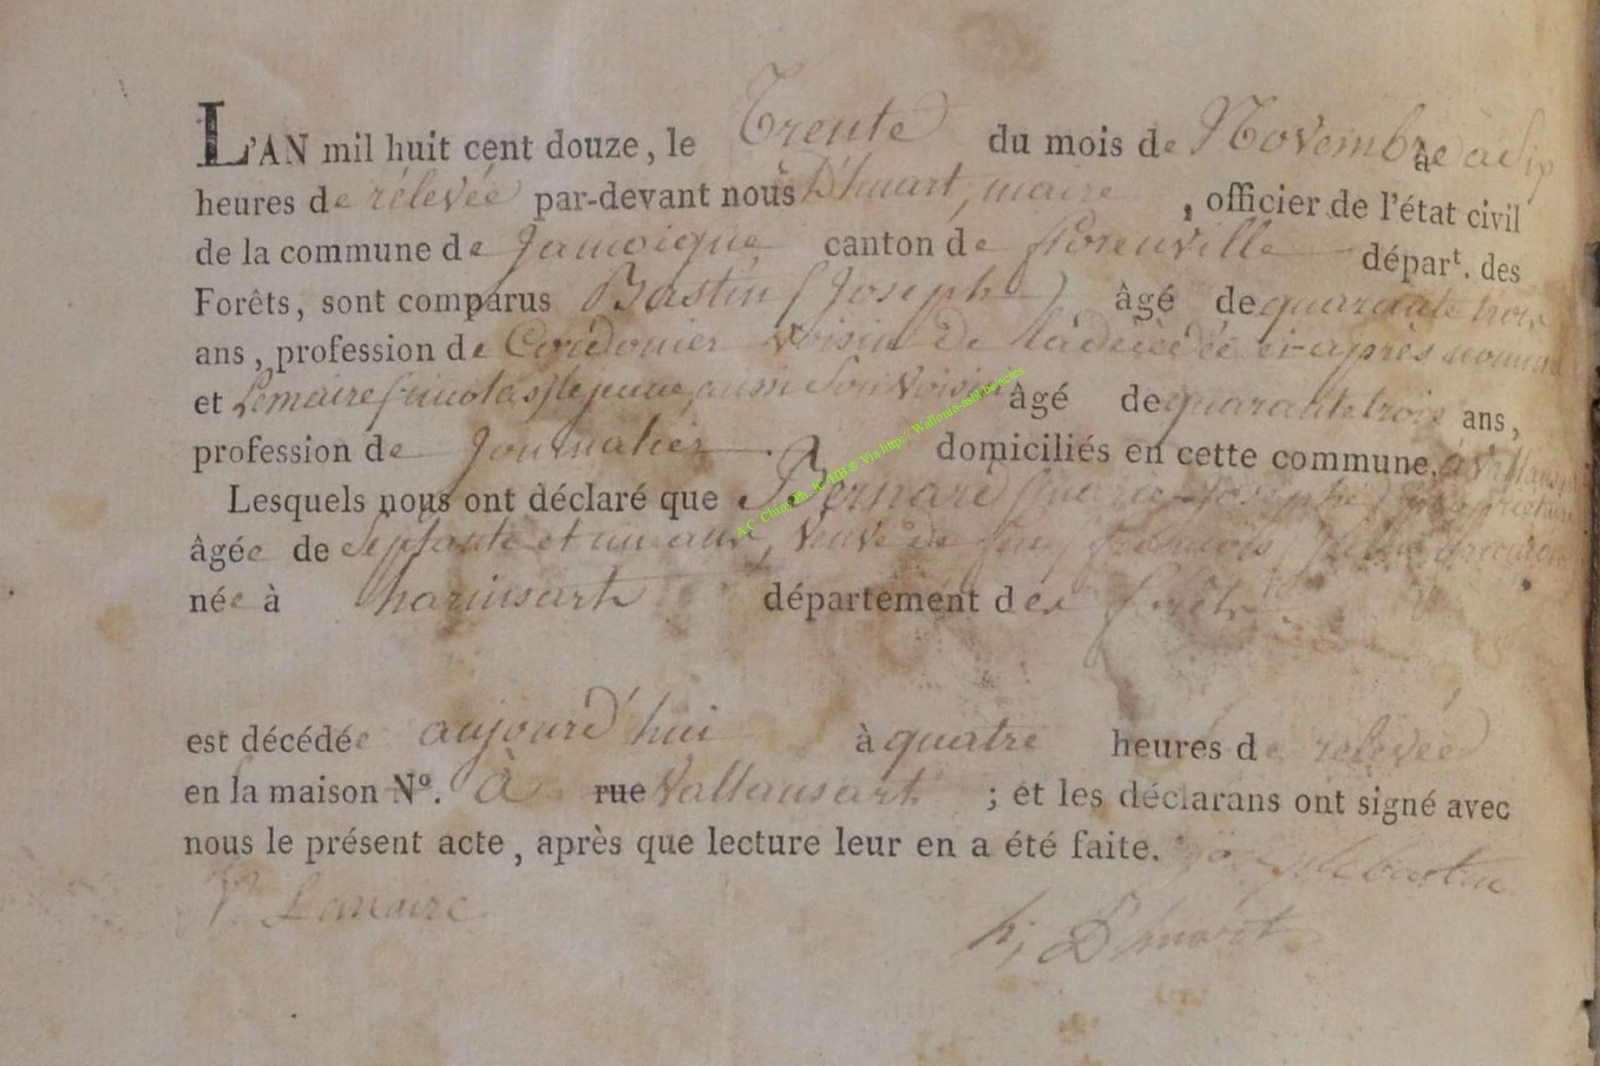 L'AN mil huit cent douze, le Trente du mois de Novembre à Six
heures de rélevée par-devant nous D'huart, maire, officier de l'état civil
de la commune de Jamoigne canton de florenville départ. des
Forêts, sont comparus Bastin (Joseph) âgé de quarante trois
ans, profession de Cordonier voisin de la décédée ci-après nommée
et Lemaire (nicolas) le jeune, aussi Son Voisin âgé de quarante trois ans,
profession de Journalier domiciliés en cette commune. à Vallansart
Lesquels nous ont déclaré que Pernard (marie-Josephe)
âgée de Septante et un ans, Veuve de feu françois
née à harinsart département des forêts
est décédée aujourd'hui à quatre heures de relevée
en la maison Nº. à rue Vallansart ; et les déclarans ont signé avec
nous le présent acte, après que lecture leur en a été faite. bastin
N. Lemaire h; D'huart
A.C. Chiny Ph. JC/HB @ Via http://Wallonia-asbl.be/actes